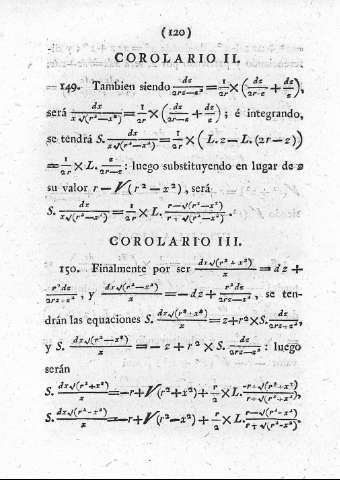 (120)
COROLARIO II.
149. Tambien siendo dz/(2rz-z²) = 1/2r × (dz/(2r-z) + dz/z),
será dx/(x√(r²-x²)) = 1/2r × (dz/(2r-z) + dz/z); é integrando,
se tendrá S. dx/(x√(r²-x²)) = 1/2r × (L. z - L. (2r-z))
= 1/2r × L. z/(2r-z) : luego substituyendo en lugar de z
su valor r-√(r²-x²), será
S. dx/(x√(r²-x²)) = 1/2r × L. (r-√(r²-x²))/(r+√(r²-x²)).
COROLARIO III.
150. Finalmente por ser dx√(r²+x²)/x = dz +
r²dz/(2rz+z²), y dx√(r²-x²)/x = -dz + r²dz/(2rz-z²), se ten-
drán las equaciones S. dx√(r²+x²)/x = z+r²×S. dz/(2rz+z²),
y S. dx√(r²-x²)/x = -z+r²×S. dz/(2rz-z²) : luego
serán
S. dx√(r²+x²)/x = -r+√(r²+x²)+ r/2 ×L. (-r+√(r²+x²))/(r+√(r²+x²)),
S. dx√(r²-x²)/x = -r+√(r²-x²)+ r/2 ×L. (r-√(r²-x²))/(r+√(r²-x²)).